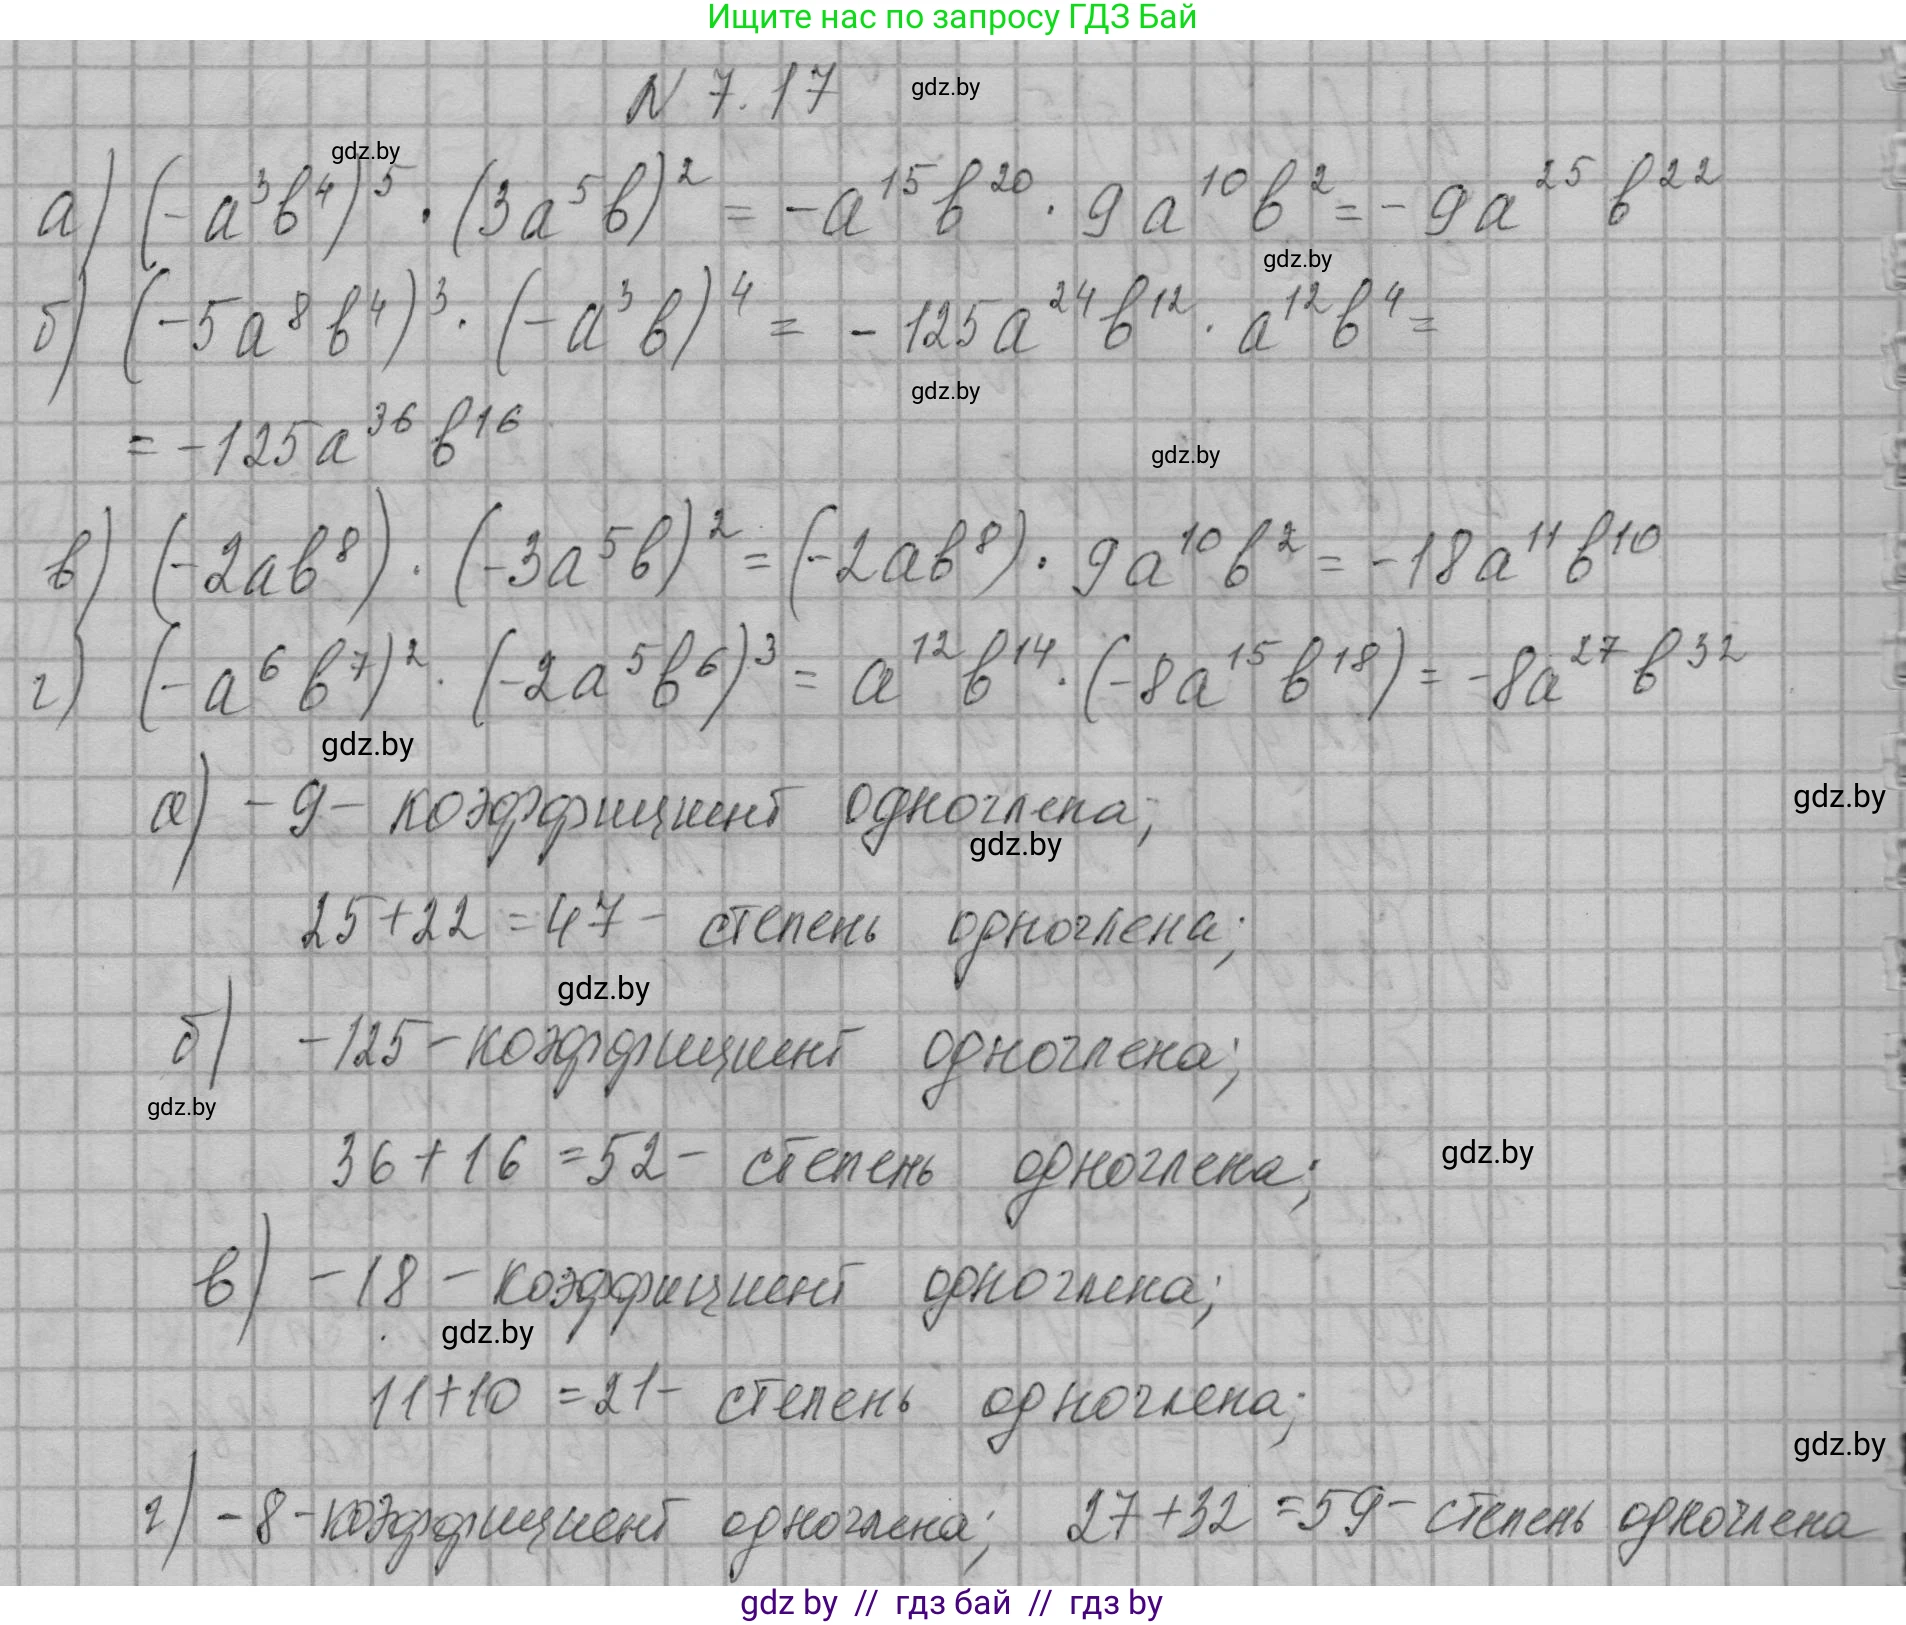 Ищите нас по запросу ГДЗ Бай
N 7.17 gdz.by
gdz.by
а) (-a³b⁴)⁵ · (3a⁵b)² = -a¹⁵b²⁰ · 9a¹⁰b² = -9a²⁵b²²
gdz.by
б) (-5a⁸b⁴)³ · (-a³b)⁴ = -125a²⁴b¹² · a¹²b⁴ =
gdz.by
= -125a³⁶b¹⁶
gdz.by
в) (-2ab⁸) · (-3a⁵b)² = (-2ab⁸) · 9a¹⁰b² = -18a¹¹b¹⁰
г) (-a⁶b⁷)² · (-2a⁵b⁶)³ = a¹²b¹⁴ · (-8a¹⁵b¹⁸) = -8a²⁷b³²
gdz.by
а) -9 - коэффициент одночлена;
gdz.by
gdz.by
25+22 = 47 - степень одночлена;
gdz.by
б) -125 - коэффициент одночлена;
gdz.by
36+16 = 52 - степень одночлена;
gdz.by
в) -18 - коэффициент одночлена;
gdz.by
11+10 = 21 - степень одночлена;
gdz.by
г) -8 - коэффициент одночлена; 27+32 = 59 - степень одночлена
gdz by // гдз бай // гдз by